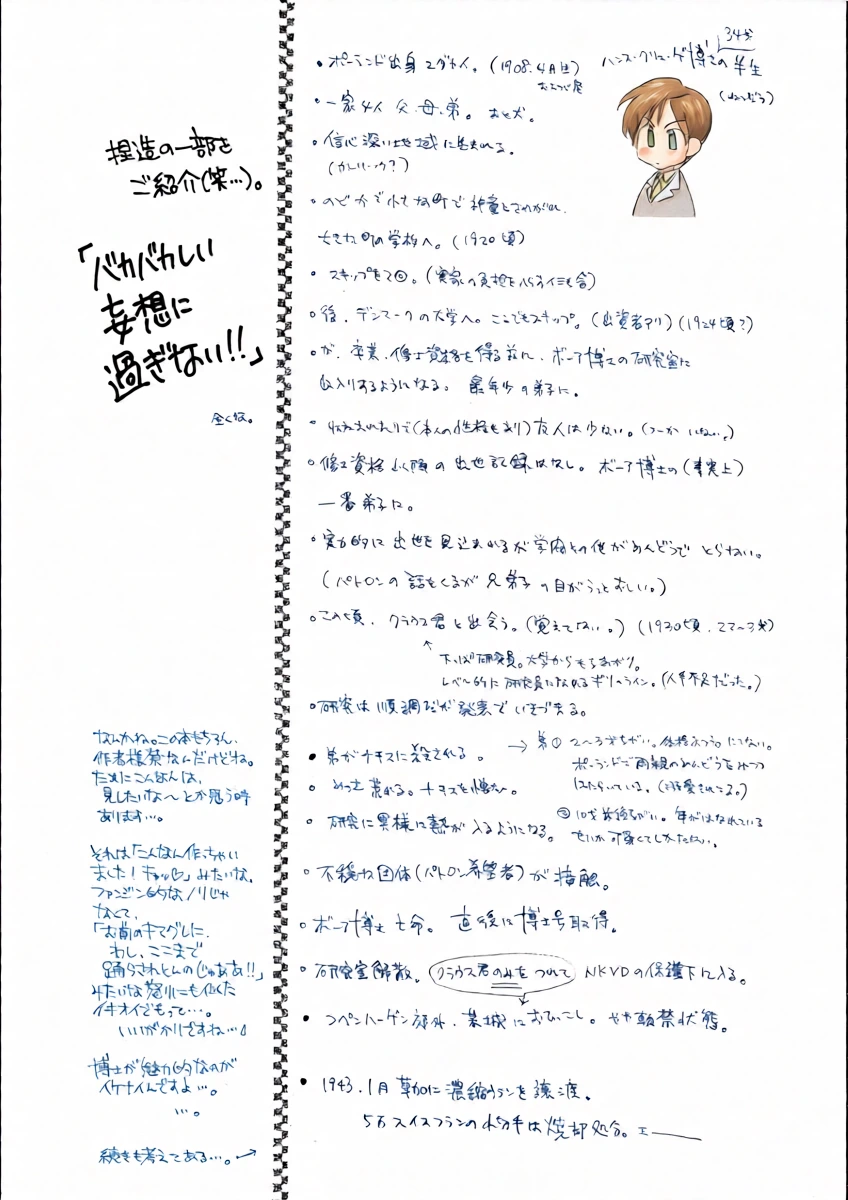 捏造の一部を
ご紹介(笑…)。
「バカバカしい
妄想に
過ぎない!!」
全くな。
なんかね。この本もちろん、
作者様宛なんだけどね。
ためにこんなんは、
見したいな〜とか思う時
あります…。
それは「こんなん作っちゃい
ました!キャッ♡」みたいな、
ファンジン的なノリじゃ
なくて、
「お前のキマグレに、
わし、ここまで
踊らされとんのじゃああ!!」
みたいな怒りにも似た
イキオイでもって…。
いいがかりですね…
博士が魅力的なのが
イケナイんですよ…。
…。
続きも考えてある…。→
34才
ハンス・クリューゲ博士の半生
・ポーランド出身ユダヤ人。(1908.4月生)
おひつじ座
・一家4人 父、母、弟。あと犬。
・信心深い地域に生まれる。
・のどかで小さな町で神童とされ
大きな町の学校へ。(1920頃)
・スキップをする。(実家の負担をへらすイミも含)
・後、デンマークの大学へ。ここでもスキップ。(出資者アリ)(1924頃?)
・が、卒業、修士資格を得る前に、ボーア博士の研究室に
出入りするようになる。 最年少の弟子に。
(本人の性格もあり)友人は少ない。(つーかいない。)
・修士資格以降の出世記録はなし。ボーア博士の(事実上)
一番弟子に。
・実力的に出世を見込まれるが学内との他がめんどうでとらない。
(パトロンの話もくるが兄弟子の目がうっとおしい。)
・この頃、クラウス君と出会う。(覚えてない。)(1930頃、22〜3才)
↑下っぱ研究員。大学からもちあがり。
レベル的に研究員になれるギリのライン。(人手不足だった。)
・研究は順調だが発表でいきづまる。
・弟がナチスに殺される。
→ 弟① 2〜3才ちがい。体格ふつう。にてない。
ポーランドで両親のめんどうをみつつ
はたらいている。(溺愛されてる。)
② 10才前後ちがい。年がはなれている
せいか可愛くてしかたない。
・めっさ荒れる。ナチスを憎む。
・研究に異様に熱が入るようになる。
・不穏な団体(パトロン希望者)が接触。
・ボーア博士亡命。直後に博士号取得。
・研究室解散。クラウス君のみをつれて NKVDの保護下に入る。
・コペンハーゲン郊外、古城におひっこし。やや軟禁状態。
・1943.1月 に濃縮ウランを譲渡。
5万スイスフランの小切手は焼却処分。